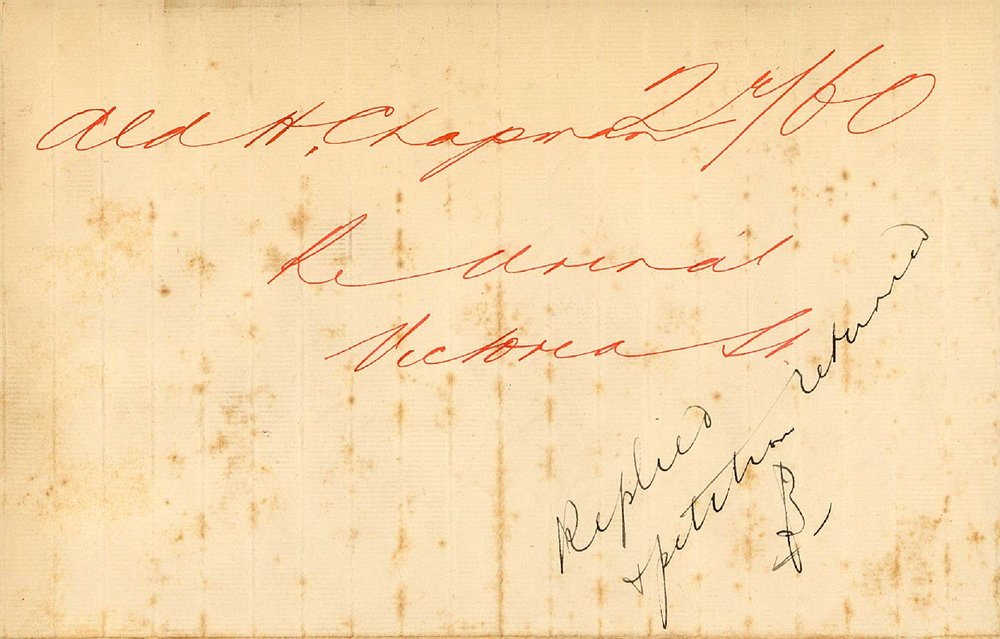 Ald H. Chapman
Re Urinal
Victoria St
Replied
& petition returned